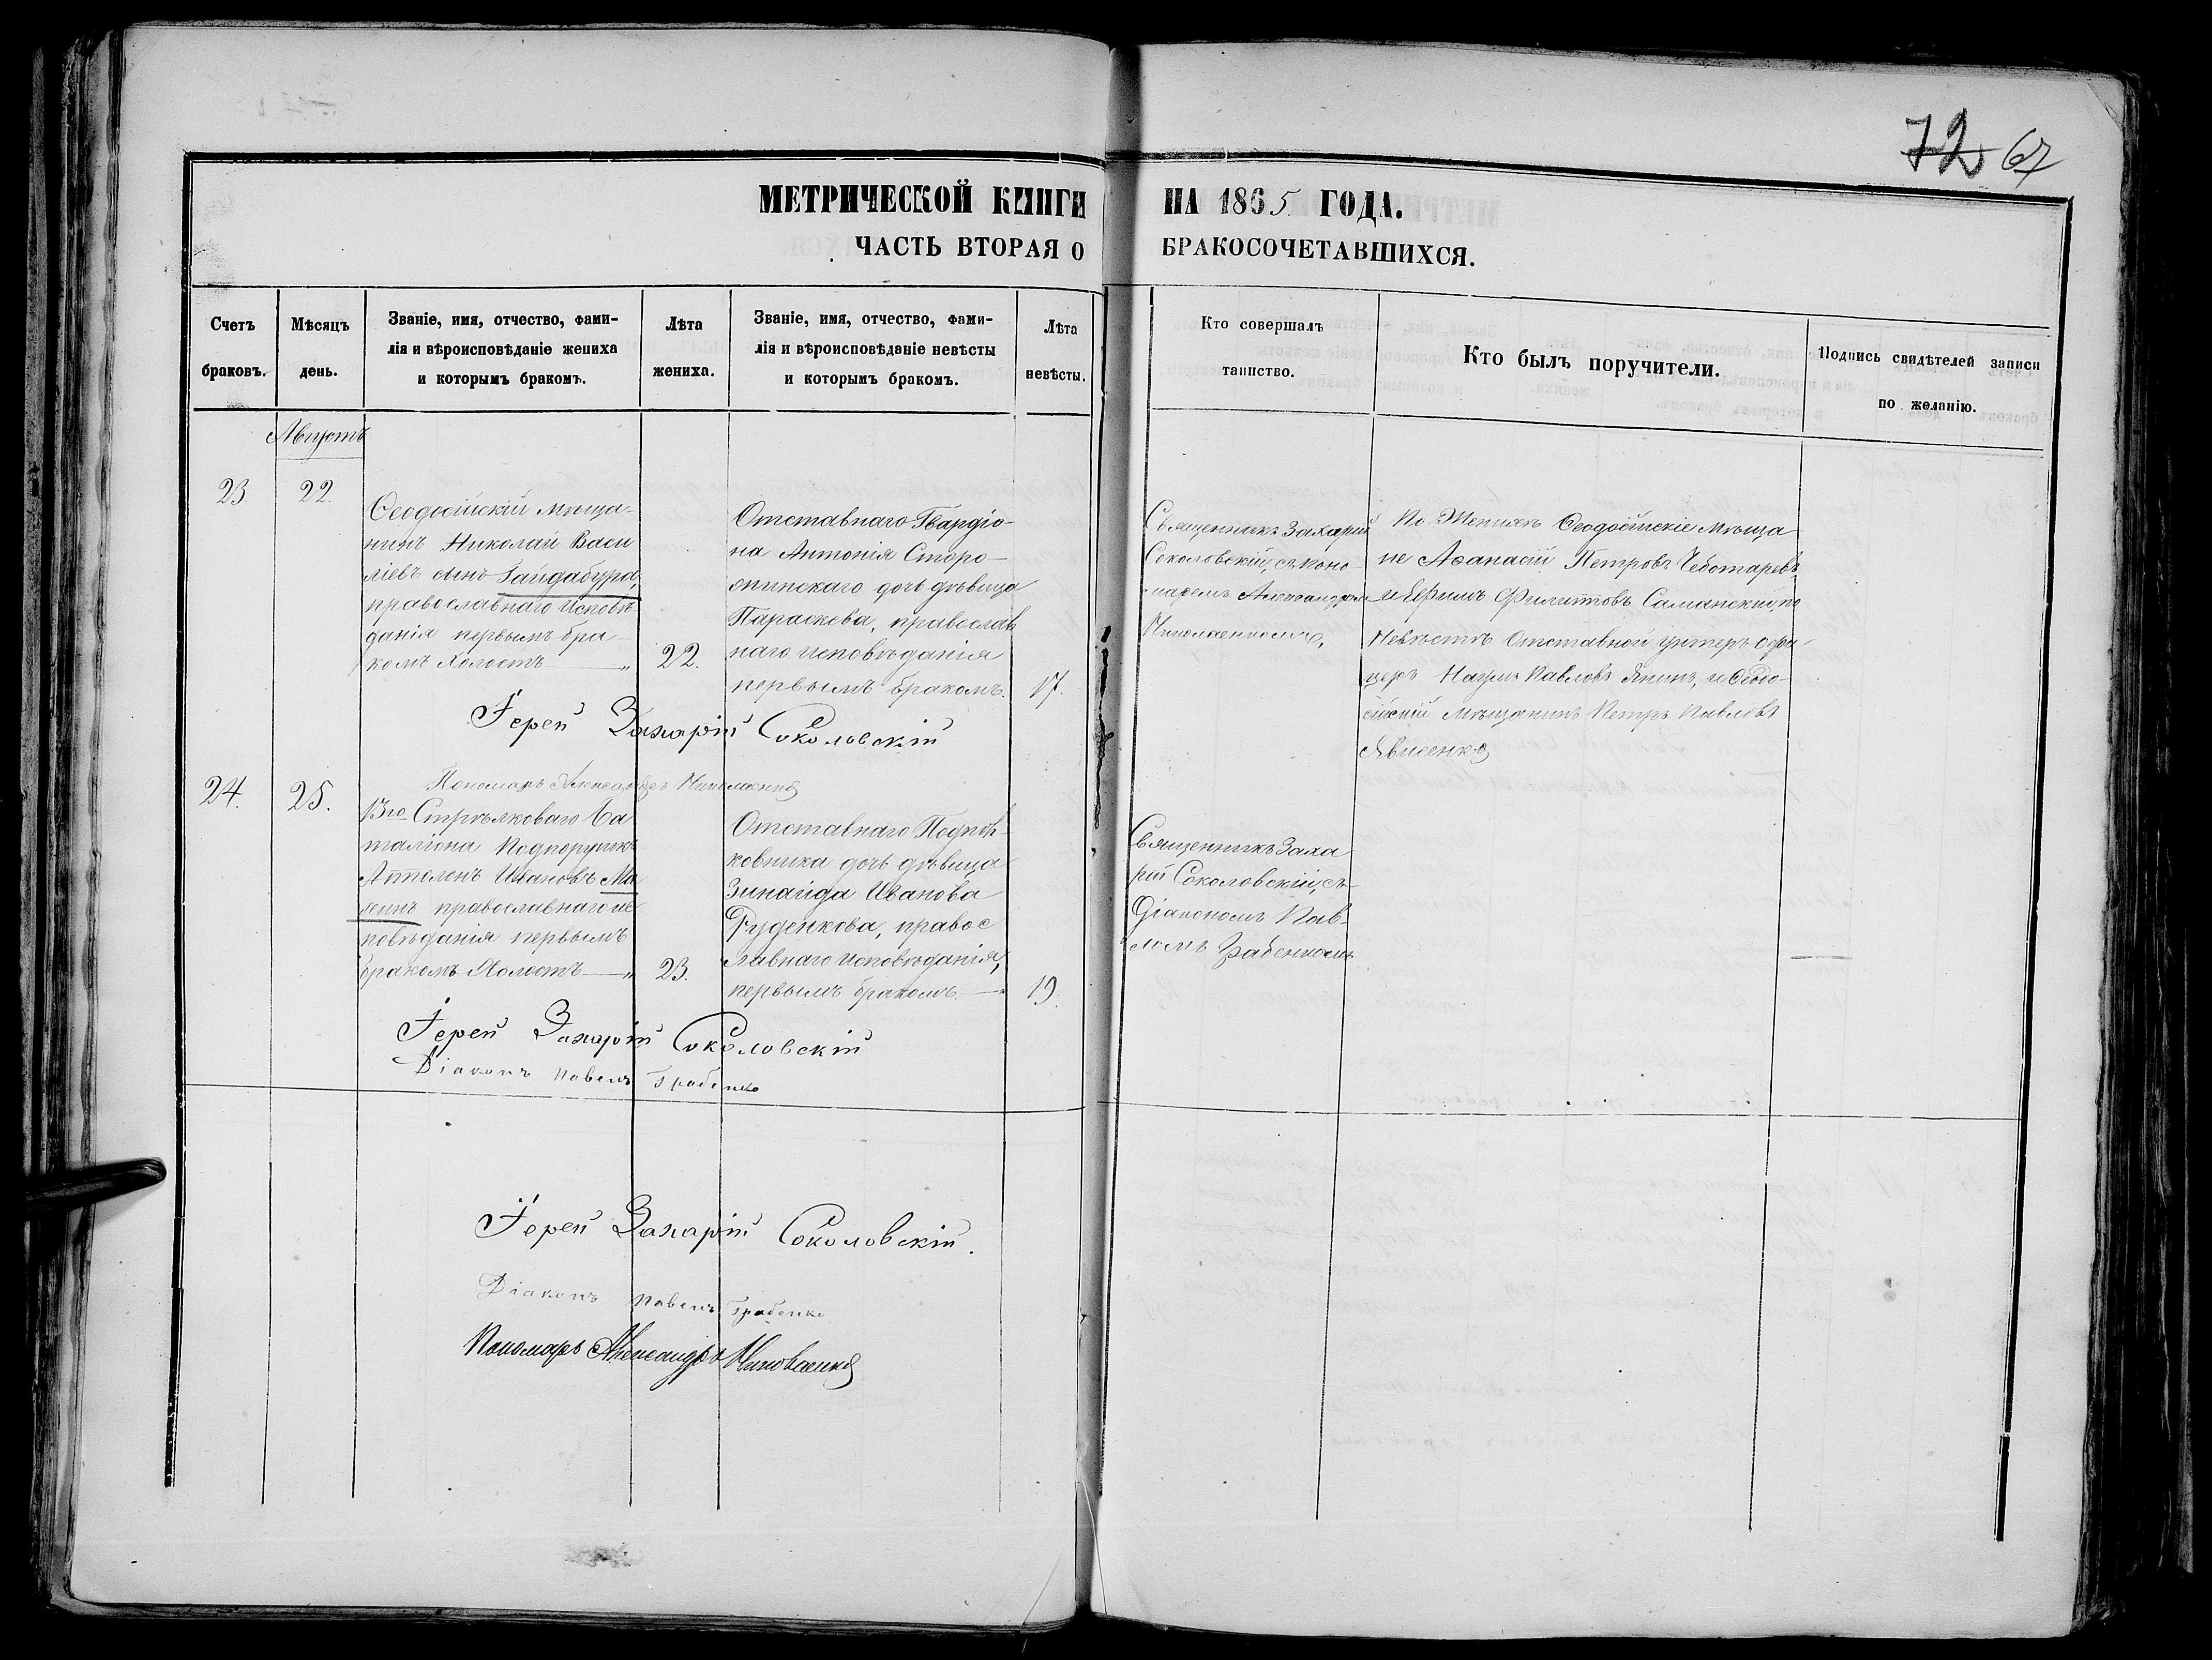 72 67
МЕТРИЧЕСКОЙ КНИГИ НА 1865 ГОДА.
ЧАСТЬ ВТОРАЯ О БРАКОСОЧЕТАВШИХСЯ.
Счетъ
браковъ.
Мѣсяцъ
день.
Званіе, имя, отчество, фами-
лія и вѣроисповѣданіе жениха
и которымъ бракомъ.
Лѣта
жениха.
Званіе, имя, отчество, фами-
лія и вѣроисповѣданіе невѣсты
и которымъ бракомъ.
Лѣта
невѣсты.
Кто совершалъ
таинство.
Кто былъ поручители.
Подпись свидѣтелей записи
по желанію.
Августъ
23
22
Ѳеодосійскій мѣща-
нинъ Николай Васи
ліевъ сынъ Гайдабура,
православнаго исповѣ
данія первымъ бра-
комъ холостъ — „
22.
Отставнаго Гвардіо-
на Антонія Сторо-
жинскаго дочь дѣвица
Параскева, православ
наго исповѣданія
первымъ бракомъ.
17.
Священникъ Захарій
Соколовскій, съ поно-
маремъ Александромъ
По Женихѣ Ѳеодосійскіе мѣща
не Аѳанасій Петровъ Чеботаревъ,
и Ефимъ Филиповъ Саманскій, по
Невѣстѣ Отставной унтеръ офи-
церъ Наумъ Павловъ и Ѳеодо-
сійскій мѣщанинъ Петръ Павловъ
Іерей Захарій Соколовскій
Пономарь Александръ
24.
25.
13го Стрѣлковаго Ба
таліона Подпоручикъ
Апполонъ Ивановъ Ма
кинъ православнаго ис
повѣданія первымъ
бракомъ Холостъ — „
23.
Отставнаго Подпол-
ковника дочь дѣвица
Зинаида Иванова
Руденкова, правос
лавнаго исповѣданія,
первымъ бракомъ. — „
19.
Священникъ Заха
рій Соколовскій, съ
Діакономъ Пав-
ломъ Грабенкомъ
Іерей Захарій Соколовскій
Діаконъ Павелъ Грабенко
Іерей Захарій Соколовскій.
Діаконъ Павелъ Грабенко
Пономарь Александръ